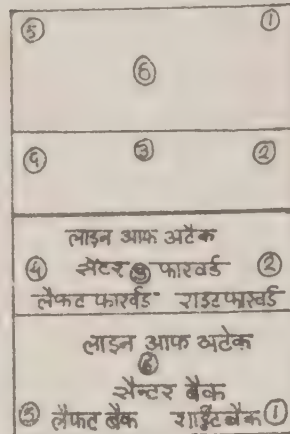 ⑤ ①
⑥
④ ③ ②
लाइन आफ अटैक
④ सेंटर ③ फारवर्ड ②
लैफट फारवर्ड राइट फारवर्ड
लाइन आफ अटेक
⑥
सैन्टर बैक
⑤ लैफट बैक राईट बैक ①